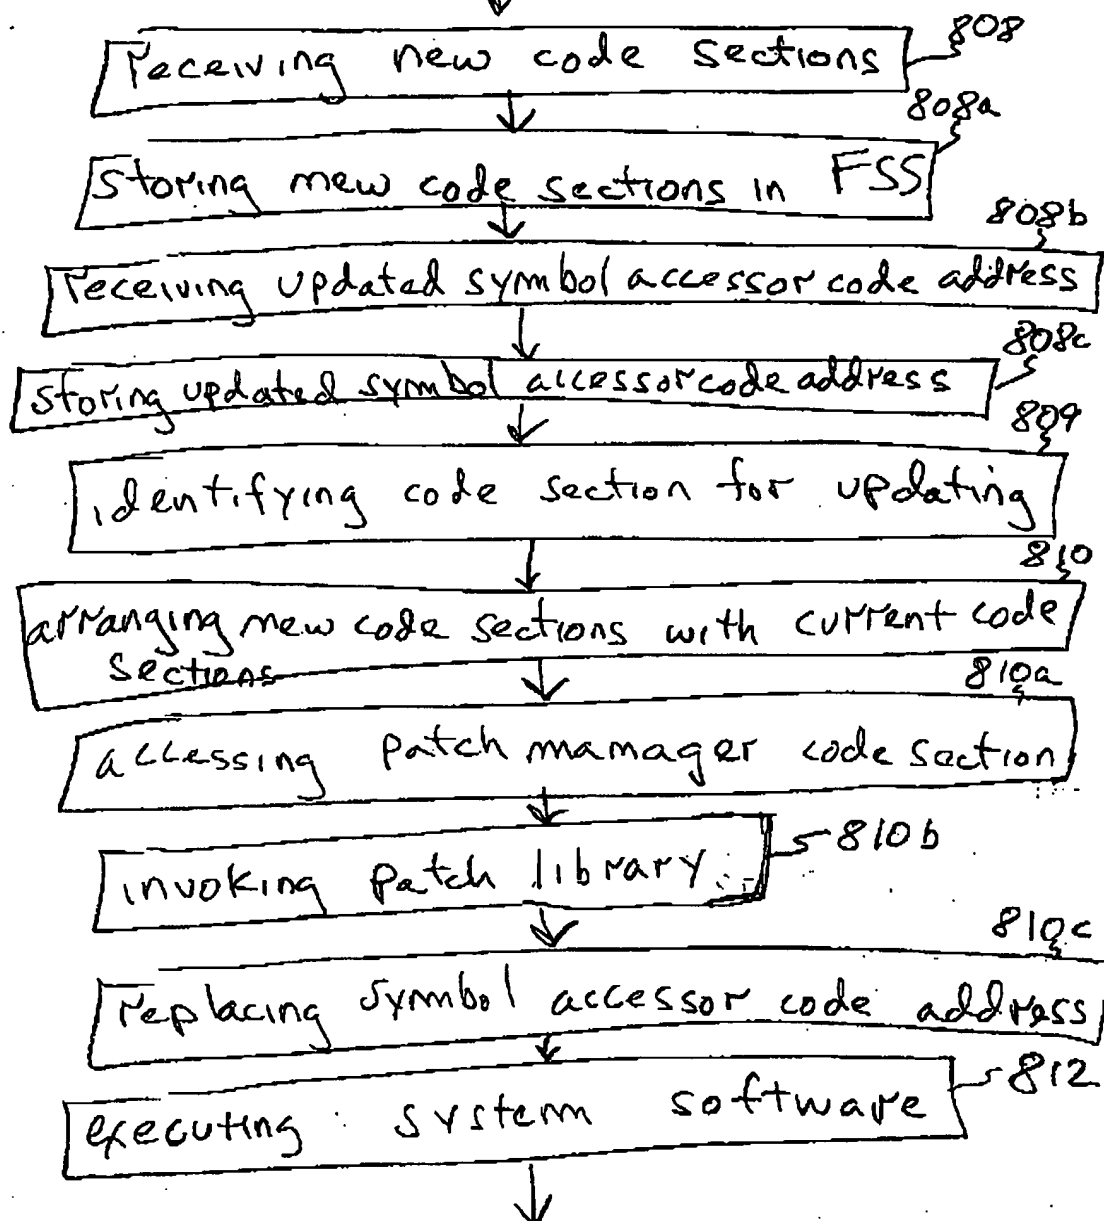 808
receiving new code sections
808a
storing new code sections in FSS
808b
receiving updated symbol accessor code address
808c
storing updated symbol accessor code address
809
identifying code section for updating
810
arranging new code sections with current code
sections
810a
accessing patch manager code section
810b
invoking patch library
810c
replacing symbol accessor code address
812
executing system software